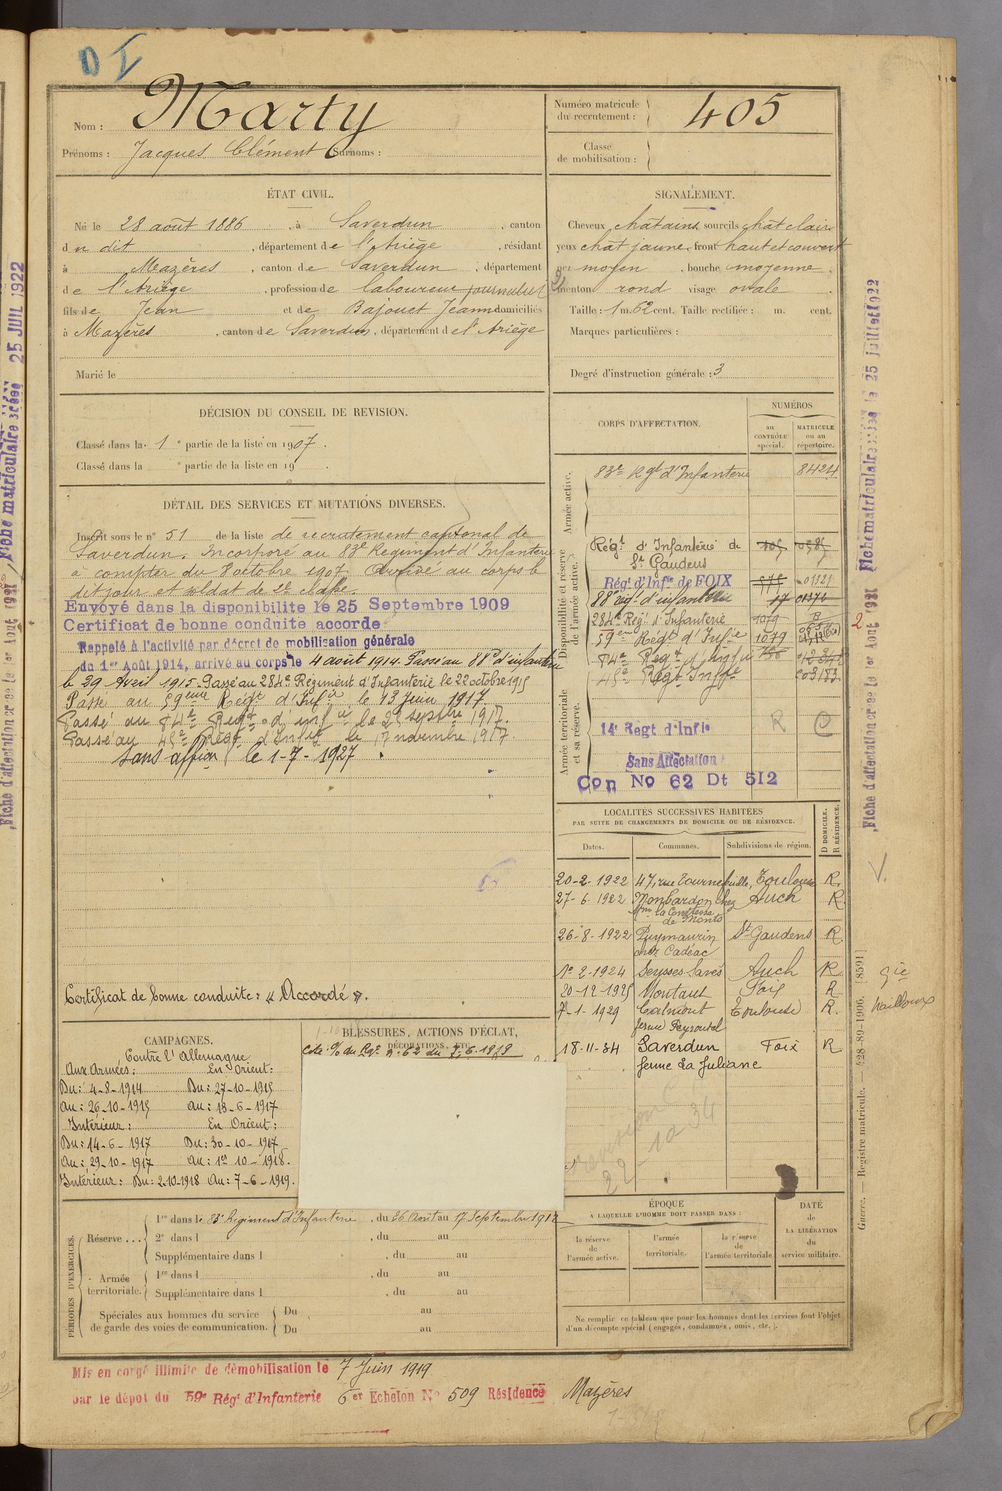 Nom : Marty
Prénoms : Jacques Clément Surnoms :
Numéro matricule du recrutement : 405
Classe de mobilisation :
ÉTAT CIVIL.
Né le 28 août 1886, à Saverdun, canton
du dit, département de l'Ariège, résidant
à Mazères, canton de Saverdun, département
de l'Ariège, profession de laboureur journalier
fils de Jean et de Bajouet Jeanne domiciliés
à Mazères, canton de Saverdun, département de l'Ariège
Marié le
SIGNALEMENT.
Cheveux châtains, sourcils chât clair
yeux chât jaune, front haut et couvert
nez moyen, bouche moyenne,
menton rond visage ovale.
Taille : 1 m. 62 cent. Taille rectifiée : m. cent.
Marques particulières :
Degré d'instruction générale : 3
DÉCISION DU CONSEIL DE REVISION.
Classé dans la 1e partie de la liste en 1907.
Classé dans la e partie de la liste en 19 .
DÉTAIL DES SERVICES ET MUTATIONS DIVERSES.
Inscrit sous le n° 51 de la liste de recrutement cantonal de
Saverdun. Incorporé au 83e Régiment d'Infanterie
à compter du 8 octobre 1907. Arrivé au corps le
dit jour et soldat de 2e classe.
Envoyé dans la disponibilite le 25 Septembre 1909
Certificat de bonne conduite accorde
Rappelé à l'activité par décret de mobilisation générale
du 1er Août 1914, arrivé au corps le 4 août 1914. Passé au 88e d'infanterie
le 29 Avril 1915. Passé au 284e Régiment d'Infanterie le 22 octobre 1915
Passé au 59eme Régt d'Infie le 13 Juin 1917.
Passé au 84e Regt d'infie le 25 septbre 1917.
Passé au 45e Regt d'Infie le 17 novembre 1917.
Sans affion le 1-7-1927
Certificat de bonne conduite : "Accordé".
CORPS D'AFFECTATION.
NUMÉROS
au contrôle spécial.
MATRICULE ou au répertoire.
Armée active.
83e Rgt d'Infanterie 8424
Disponibilité et réserve de l'armée active.
Régt d'Infanterie de
St Gaudens
Régt d'Infie de FOIX
88e régt d'infanterie 17
284e Rég. d'Infanterie 1079
59eme Régt d'Infie 1079
84e Regt d'infie
45e Regt Infie
Armée territoriale et sa réserve.
14e Regt d'Infie R
Sans Affectation
Con No 62 Dt 512
LOCALITÉS SUCCESSIVES HABITÉES
PAR SUITE DE CHANGEMENTS DE DOMICILE OU DE RÉSIDENCE.
Dates. Communes. Subdivisions de région. D DOMICILE. R RÉSIDENCE.
20-2-1922 47, rue Tournefeuille, Toulouse R
27-6-1922 Monbardon chez Auch R
Mme la Comtesse
de Monts
26-8-1922 Puymaurin St Gaudens R
chez Cadéac
1er 2-1924 Seysses Savès Auch R
20-12-1925 Montaut Foix R
7-1-1929 Calmont Toulouse R.
ferme Peyroutel
18-11-34 Saverdun Foix R
ferme La Juliane
22-10-34
CAMPAGNES.
Contre l'Allemagne
Aux Armées : En Orient :
Du : 4-8-1914 Du : 27-10-1915
Au : 26-10-1915 Au : 13-6-1917
Intérieur : En Orient :
Du : 14-6-1917 Du : 30-10-1917
Au : 29-10-1917 Au : 1er 10-1918.
Intérieur : Du : 2-10-1918 Au : 7-6-1919.
BLESSURES, ACTIONS D'ÉCLAT,
DÉCORATIONS, ETC.
PÉRIODES D'EXERCICES.
Réserve ... 1re dans le 83e Régiment d'Infanterie, du 26 Août au 17 Septembre 1912
2e dans l , du au
Supplémentaire dans l , du au
Armée territoriale. 1re dans l , du au
Supplémentaire dans l , du au
Spéciales aux hommes du service Du au
de garde des voies de communication. Du au
ÉPOQUE
A LAQUELLE L'HOMME DOIT PASSER DANS :
la réserve de l'armée active.
l'armée territoriale.
la réserve de l'armée territoriale
DATE de LA LIBÉRATION du service militaire.
Ne remplir ce tableau que pour les hommes dont les services font l'objet
d'un décompte spécial (engagés, condamnés, omis, etc.).
Mis en congé illimité de démobilisation le 7 Juin 1919
par le dépôt du 59e Régt d'Infanterie 6er Echelon N° 509 Résidence Mazères
Fiche matriculaire créée le 25 juillet 1922
Fiche d'affectation créée le 1er Août 1921
Guerre. — Registre matricule. — 428-89-1906. [8591]
Fiche matriculaire créée 25 JUIL 1922
Fiche d'affectation créée le 1er Août 1921